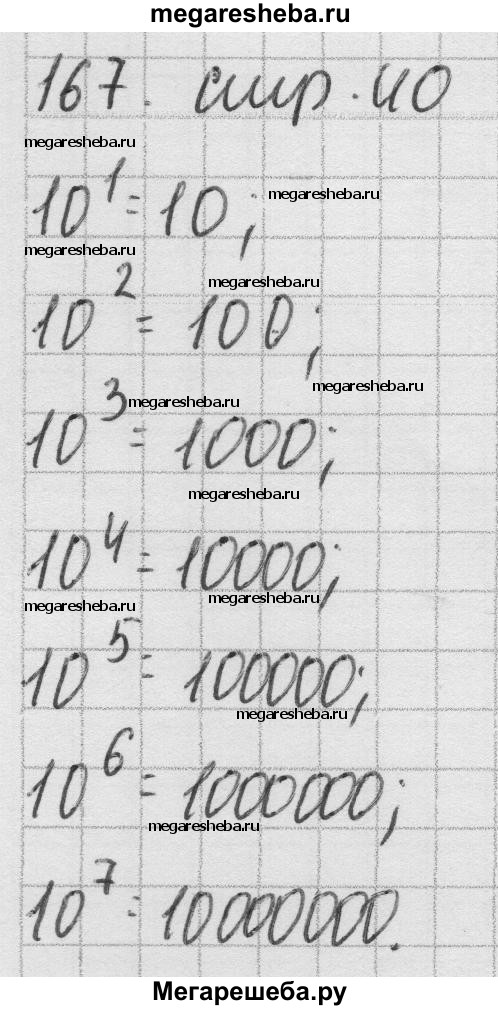 megaresheba.ru
167. стр. 40
megaresheba.ru
10¹ = 10;
megaresheba.ru
megaresheba.ru
megaresheba.ru
10² = 100;
megaresheba.ru
10³ = 1000;
megaresheba.ru
megaresheba.ru
10⁴ = 10000;
megaresheba.ru
megaresheba.ru
10⁵ = 100000;
megaresheba.ru
10⁶ = 1000000;
megaresheba.ru
10⁷ = 10000000.
Мегарешеба.ру